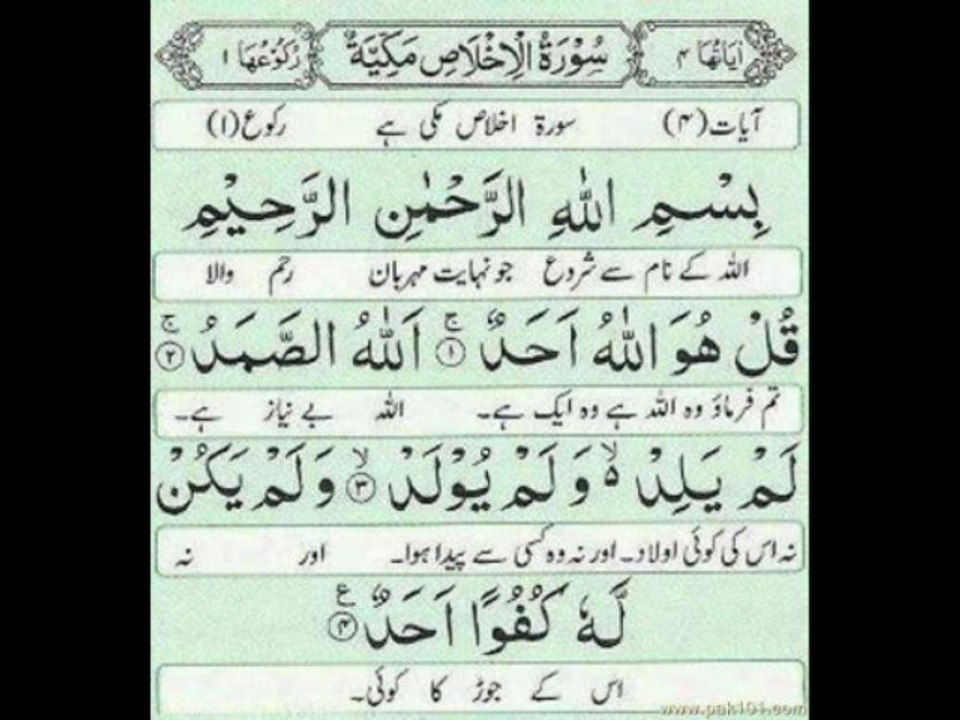 اٰیَاتُهَا ۴ سُوْرَةُ الْاِخْلَاصِ مَكِّیَّةٌ رُكُوْعُهَا ۱
آیات(۴) سورۃ اخلاص مکی ہے رکوع(۱)
بِسْمِ اللّٰهِ الرَّحْمٰنِ الرَّحِیْمِ
اللہ کے نام سے شروع جو نہایت مہربان رحم والا
قُلْ هُوَ اللّٰهُ اَحَدٌ ۚ﴿۱﴾ اَللّٰهُ الصَّمَدُ ۚ﴿۲﴾
تم فرماؤ وہ اللہ ہے وہ ایک ہے۔ اللہ بے نیاز ہے۔
لَمْ یَلِدْ ۙ۬ وَ لَمْ یُوْلَدْ ۙ﴿۳﴾ وَ لَمْ یَكُنْ
نہ اس کی کوئی اولاد۔ اور نہ وہ کسی سے پیدا ہوا۔ اور نہ
لَّهٗ كُفُوًا اَحَدٌ ﴿۴﴾ ع
اس کے جوڑ کا کوئی۔
www.pak101.com